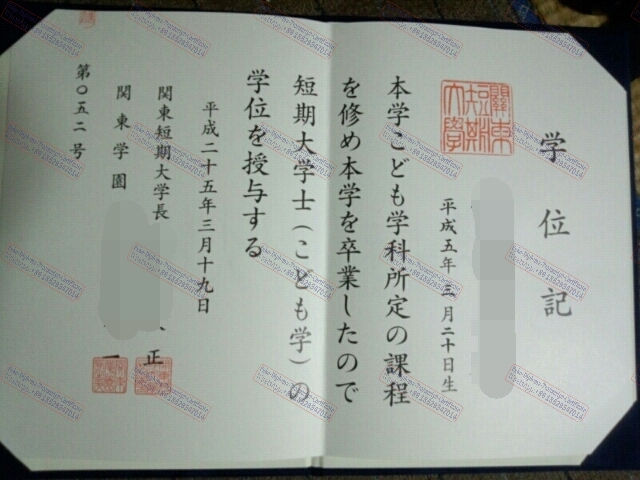 学位記
平成五年三月二十日生
關東短期大學
本学こども学科所定の課程
を修め本学を卒業したので
短期大学士(こども学)の
学位を授与する
平成二十五年三月十九日
関東短期大学長
正
関東学園
一
第〇五二号